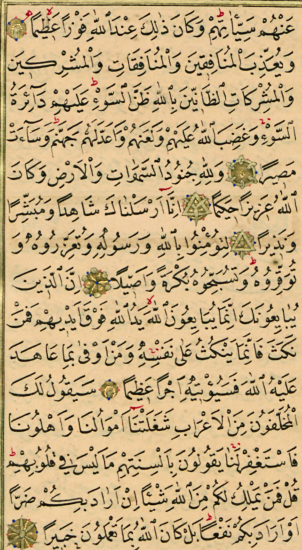 عَنْهُمْ سَيِّـَٔاتِهِمْ وَكَانَ ذٰلِكَ عِنْدَ اللّٰهِ فَوْزًا عَظِيمًا
وَيُعَذِّبَ الْمُنَافِقِينَ وَالْمُنَافِقَاتِ وَالْمُشْرِكِينَ
وَالْمُشْرِكَاتِ الظَّانِّينَ بِاللّٰهِ ظَنَّ السَّوْءِ عَلَيْهِمْ دَآئِرَةُ
السَّوْءِ وَغَضِبَ اللّٰهُ عَلَيْهِمْ وَلَعَنَهُمْ وَاَعَدَّ لَهُمْ جَهَنَّمَ وَسَآءَتْ
مَصِيرًا وَلِلّٰهِ جُنُودُ السَّمٰوَاتِ وَالْاَرْضِ وَكَانَ
اللّٰهُ عَزِيزًا حَكِيمًا اِنَّآ اَرْسَلْنَاكَ شَاهِدًا وَمُبَشِّرًا
وَنَذِيرًا لِتُؤْمِنُوا بِاللّٰهِ وَرَسُولِهِ وَتُعَزِّرُوهُ وَ
تُوَقِّرُوهُ وَتُسَبِّحُوهُ بُكْرَةً وَاَصِيلًا اِنَّ الَّذِينَ
يُبَايِعُونَكَ اِنَّمَا يُبَايِعُونَ اللّٰهَ يَدُ اللّٰهِ فَوْقَ اَيْدِيهِمْ فَمَنْ
نَكَثَ فَاِنَّمَا يَنْكُثُ عَلٰى نَفْسِهِ وَمَنْ اَوْفٰى بِمَا عَاهَدَ
عَلَيْهُ اللّٰهَ فَسَيُؤْتِيهِ اَجْرًا عَظِيمًا سَيَقُولُ لَكَ
الْمُخَلَّفُونَ مِنَ الْاَعْرَابِ شَغَلَتْنَآ اَمْوَالُنَا وَاَهْلُونَا
فَاسْتَغْفِرْ لَنَا يَقُولُونَ بِاَلْسِنَتِهِمْ مَا لَيْسَ فِي قُلُوبِهِمْ
قُلْ فَمَنْ يَمْلِكُ لَكُمْ مِنَ اللّٰهِ شَيْئًا اِنْ اَرَادَ بِكُمْ ضَرًّا
اَوْ اَرَادَ بِكُمْ نَفْعًا بَلْ كَانَ اللّٰهُ بِمَا تَعْمَلُونَ خَبِيرًا